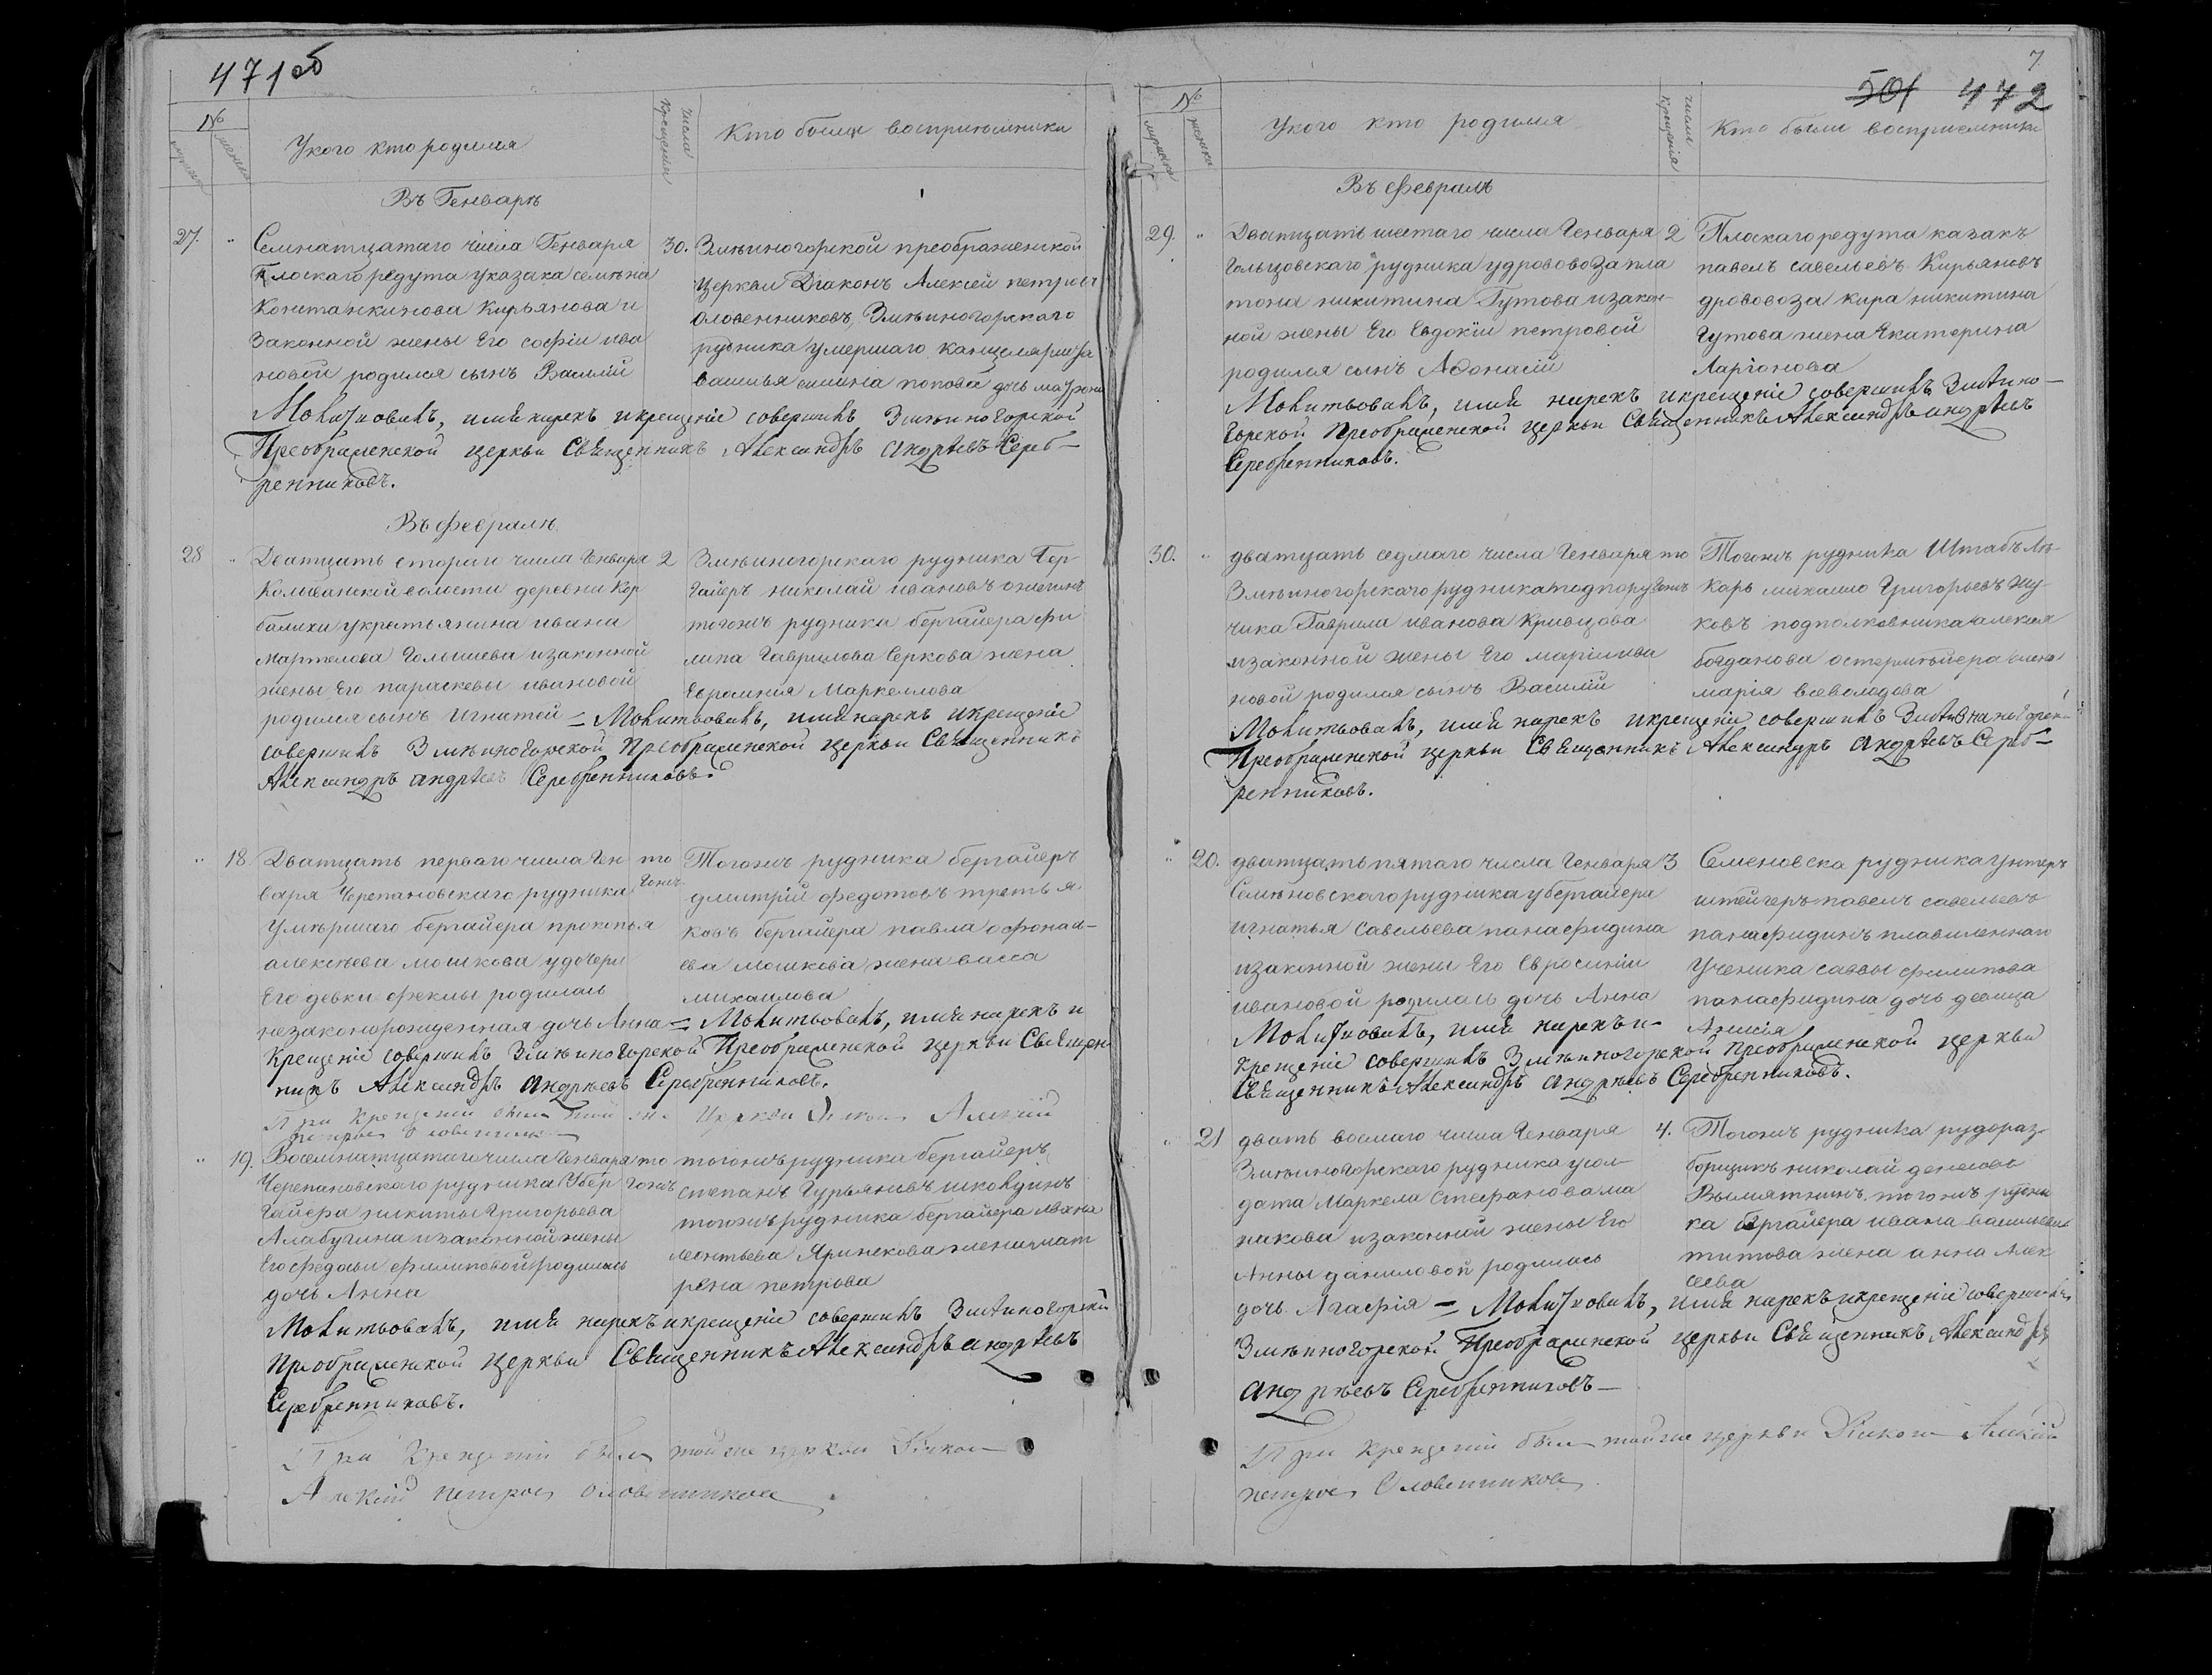 471 об
№
мужеска
женска
У кого кто родился
число
крещения
Кто были восприемники
Въ Генваре
27. Семнатцатаго числа Генваря
Плоскаго редута у казака семѣна
Констанкинова Кирьянова и
Законной жены Его софiи ива
новой родился сынъ Василiй
30. Змѣиногорской преображенской
церкви Дiаконъ Алексѣй петровъ
Оловенниковъ, Змѣиногорскаго
рудника умершаго канцеляриста
василья попова дочь
Молитвовалъ, имя нарекъ и крещенiе совершилъ Змѣиногорской
Преображенской церкви Священникъ Александръ андрѣевъ Сереб-
ренниковъ.
Въ Феврале
28 Дватцать втораго числа Генваря
Колыванской волости деревни Кор
балихи у крестьянина ивана
Мартелова Голышева и законной
жены Его параскевы ивановой
родился сынъ Игнатей =
2 Змѣиногорскаго рудника Бер
гаиеръ николай ивановъ
тогожъ рудника бергайера фи
липа Гаврилова Серкова жена
Евросинiя Маркеллова
Молитвовалъ, имя нарекъ и крещенiе
совершилъ Змѣиногорской Преображенской церкви Священникъ
Александръ андрѣевъ Серебренниковъ.
18 Дватцать перваго числа Ген
варя Черепановскаго рудника
Умѣршаго бергайера прокопья
алексѣева мошкова у дочери
Его девки феклы родилась
незаконорожденная дочь Анна =
то
гожъ
Тогожъ рудника бергайеръ
дмитрiй федотовъ третья
ковъ бергайера павла офонас-
ева мошкова жена васса
михаилова
Молитвовалъ, имя нарекъ и
крещенiе совершилъ Змѣиногорской Преображенской церкви Священ
никъ Александръ андрѣевъ Серебренниковъ.
При крещенiи былъ той же церкви Дiаконъ Алексiй
петровъ Оловенниковъ
19. Восемнатцатаго числа Генваря
Черепановскаго рудника Убер
гайера никиты Григорьева
Алабугина и законной жены
Его федосьи филиповой родилась
дочь Анна
то
гожъ
тогожъ рудника бергайеръ
степанъ Гурьяновъ школдинъ
тогожъ рудника бергайера
леонтьева жена мат
рена петрова
Молитвовалъ, имя нарекъ и крещенiе совершилъ Змѣиногорской
Преображенской церкви Священникъ Александръ андрѣевъ
Серебренниковъ.
При Крещенiи былъ той же церкви Дiаконъ
Алексiй петровъ Оловенниковъ
7
501 472
№
мужеска
женска
У кого кто родился
число
крещенiя
Кто были восприемники
Въ Феврале
29. Дватцать шестаго числа Генваря
Гольцовскаго рудника у дрововоза пла
тона никитина Гутова и закон-
ной жены Его Евдокiи петровой
родился сынъ Афонасiй
2 Плоскаго редута казакъ
павелъ савельевъ Кирьяновъ
дрововоза кира никитина
Гутова жена Екатерина
Ларiонова
Молитвовалъ, имя нарекъ и крещенiе совершилъ Змѣино-
горской Преображенской церкви Священникъ Александръ андрѣевъ
Серебренниковъ.
30. дватцать седмаго числа Генваря
Змѣиногорскаго рудника подпору
чика Гаврила иванова Кривцова
и законной жены Его марiи ива
новой родился сынъ Василiй
то
гожъ
Тогожъ рудника Штабъ Лѣ-
карь михаило Григорьевъ жу-
ковъ подполковника алексея
богданова остермейера жена
марiя всеволодова
Молитвовалъ, имя нарекъ и крещенiе совершилъ Змѣиногорск
Преображенской церкви Священникъ Александръ андрѣевъ Сереб-
ренниковъ.
20. дватцать пятаго числа Генваря
Семѣновскаго рудника у бергайера
игнатья савельева панафидина
и законной жены Его Евросинiи
ивановой родилась дочь Анна
3 Семеновска рудника Унтеръ
штейгеръ павелъ савельевъ
панафидинъ плавиленнаго
ученика саввы филипова
панафидина дочь девица
Анисiя
Молитвовалъ, имя нарекъ и
крещенiе совершилъ Змѣиногорской Преображенской церкви
Священникъ Александръ андрѣевъ Серебренниковъ.
21 двать восмаго числа Генваря
Змѣиногорскаго рудника усол
дата Маркела Стефанова ма
никова и законной жены Его
Анны даниловой родилась
дочь Агафiя =
4. Тогожъ рудника рудораз-
борщикъ николай
Вымятнинъ тогожъ рудни
ка бергайера ивана васильева
титова жена анна Алек
сеева
Молитвовалъ, имя нарекъ и крещенiе совершилъ
Змѣиногорской Преображенской церкви Священникъ Александръ
андрѣевъ Серебренниковъ —
При крещенiи былъ тойже церкви Дiаконъ Алексiй
петровъ Оловенниковъ